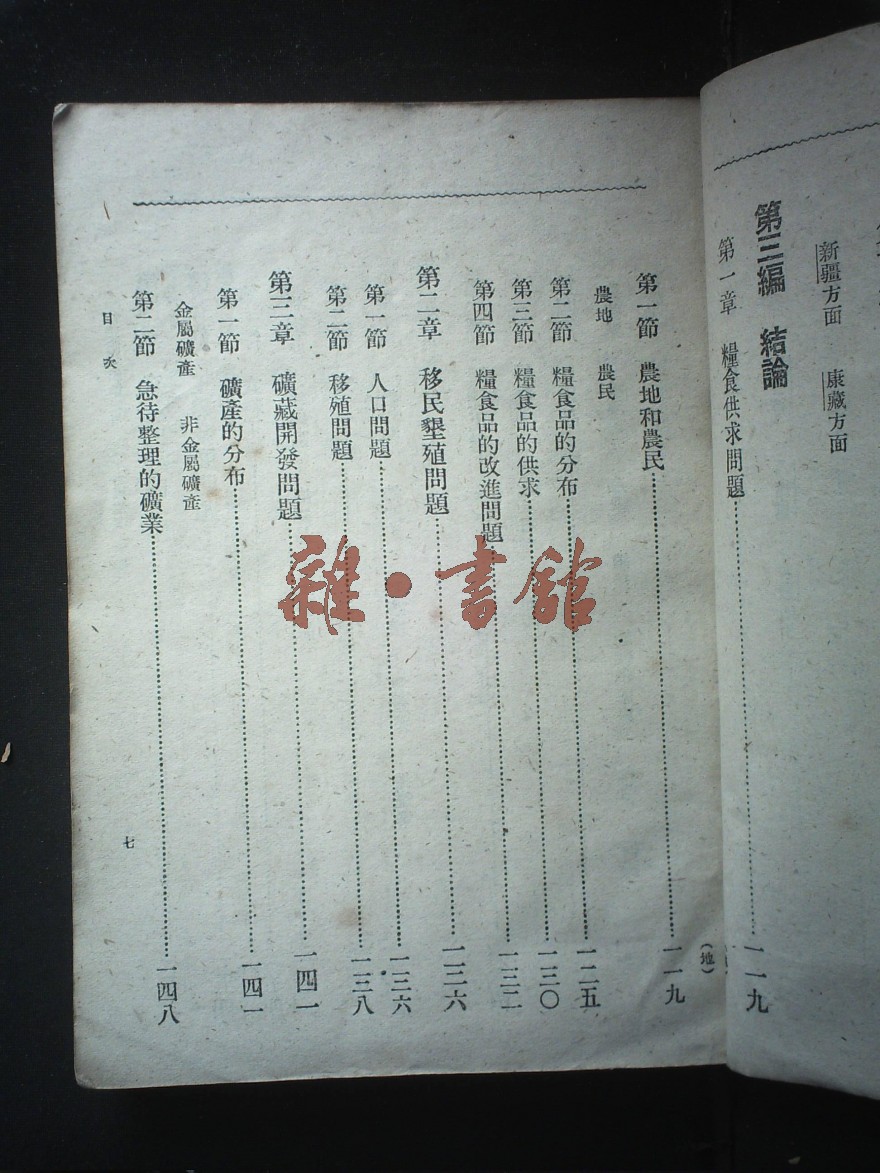 新疆方面 康藏方面
第三編 結論
第一章 糧食供求問題……一一九
(地)
第一節 農地和農民……一一九
農地 農民
第二節 糧食品的分布……一二五
第三節 糧食品的供求……一三〇
第四節 糧食品的改進問題……一三二
第二章 移民墾殖問題……一三六
第一節 人口問題……一三六
第二節 移殖問題……一三八
第三章 礦藏開發問題……一四一
第一節 礦產的分布……一四一
金屬礦產 非金屬礦產
第二節 急待整理的礦業……一四八
目次
七
雜·書館